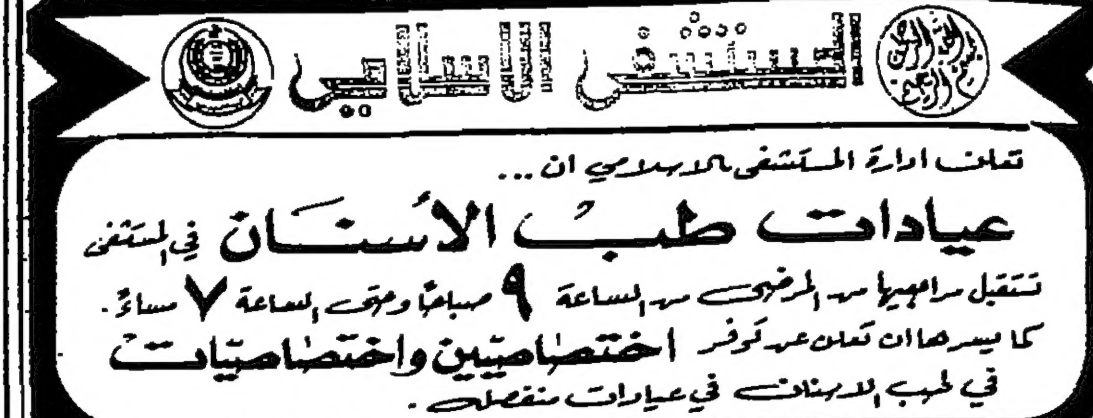 المستشفى الاسلامي
تعلن ادارة المستشفى الاسلامي ان ...
عيادات طب الأسنان في المستشفى
تستقبل مراجعيها من المرضى من الساعة ٩ صباحاً وحتى الساعة ٧ مساءً.
كما يسرها ان تعلن عن توفر اختصاصيين واختصاصيات
في طب الاسنان في عيادات منفصله.